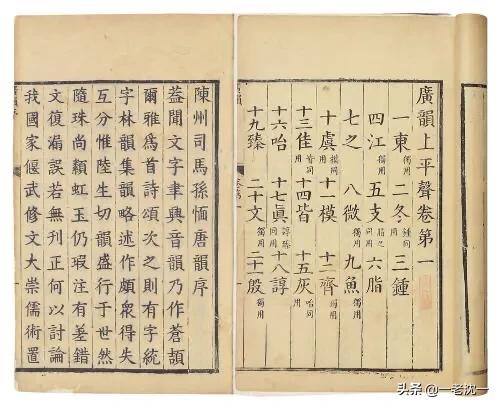 廣韻上平聲卷第一
一東獨用 二冬鍾同用 三鍾
四江獨用 五支脂之同用 六脂
七之 八微獨用 九魚獨用
十虞模同用 十一模 十二齊獨用
十三佳皆同用 十四皆 十五灰咍同用
十六咍 十七眞諄臻同用 十八諄
十九臻 二十文獨用 二十一殷獨用
陳州司馬孫愐唐韻序
蓋聞文字聿興音韻乃作蒼頡
爾雅爲首詩頌次之則有字統
字林韻集韻略述作頗衆得失
互分惟陸生切韻盛行于世然
隨珠尚纇虹玉仍瑕注有差錯
文復漏誤若無刋正何以討論
我國家偃武修文大崇儒術置
头条 @一老沈一